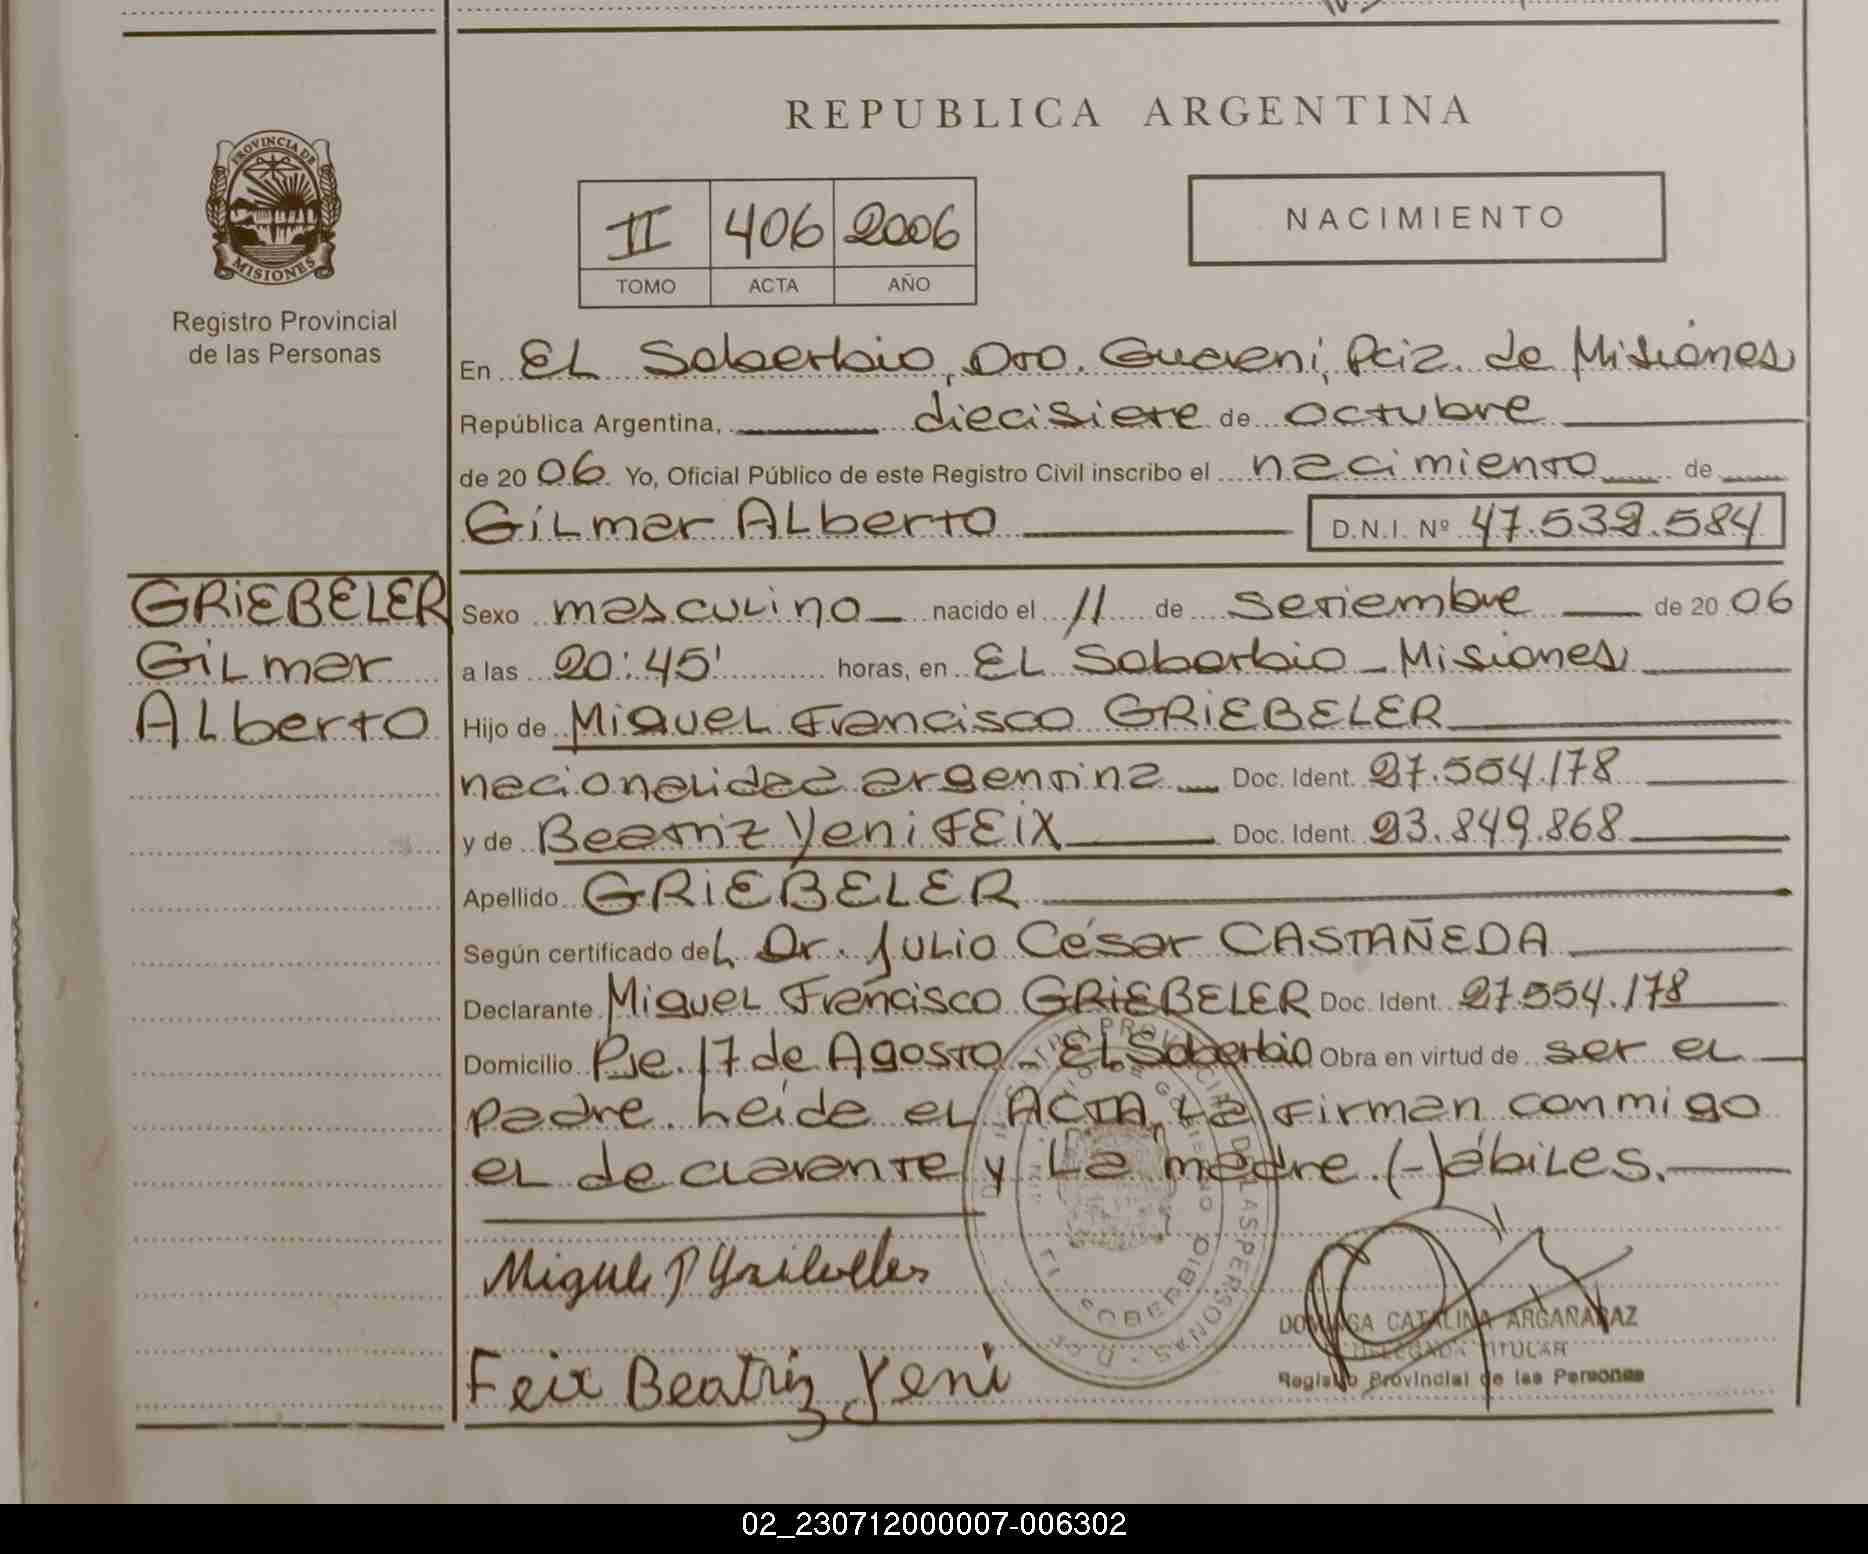 REPUBLICA ARGENTINA
PROVINCIA DE
MISIONES
Registro Provincial
de las Personas
II 406 2006
TOMO ACTA AÑO
NACIMIENTO
En EL Soberbio, Dto. Guarani, Pcia. de Misiones
República Argentina, diecisiete de octubre
de 2006 Yo, Oficial Público de este Registro Civil inscribo el nacimiento de
GiLmar ALberto D.N.I. Nº 47.532.584
GRiEBELER
GiLmar
ALberto
Sexo masculino nacido el 11 de setiembre de 2006
a las 20:45' horas, en EL Soberbio - Misiones
Hijo de MigueL Francisco GRiEBELER
nacionalidad argentina Doc. Ident. 27.554.178
y de Beatriz Yeni FEiX Doc. Ident. 93.849.868
Apellido GRiEBELER
Según certificado deL Dr. Julio César CASTAÑEDA
Declarante MigueL Francisco GRiEBELER Doc. Ident. 27.554.178
Domicilio Pje. 17 de Agosto - EL Soberbio Obra en virtud de ser el
padre. Leida el ACTA, La firman conmigo
el declarante y La madre (-) ábiles.
Miguel F
Feix Beatriz Yeni
SOBERBIO
DE LAS PERSONAS
DOMINGA CATALINA ARGAÑARAZ
DELEGADA TITULAR
Registro Provincial de las Personas
02_230712000007-006302